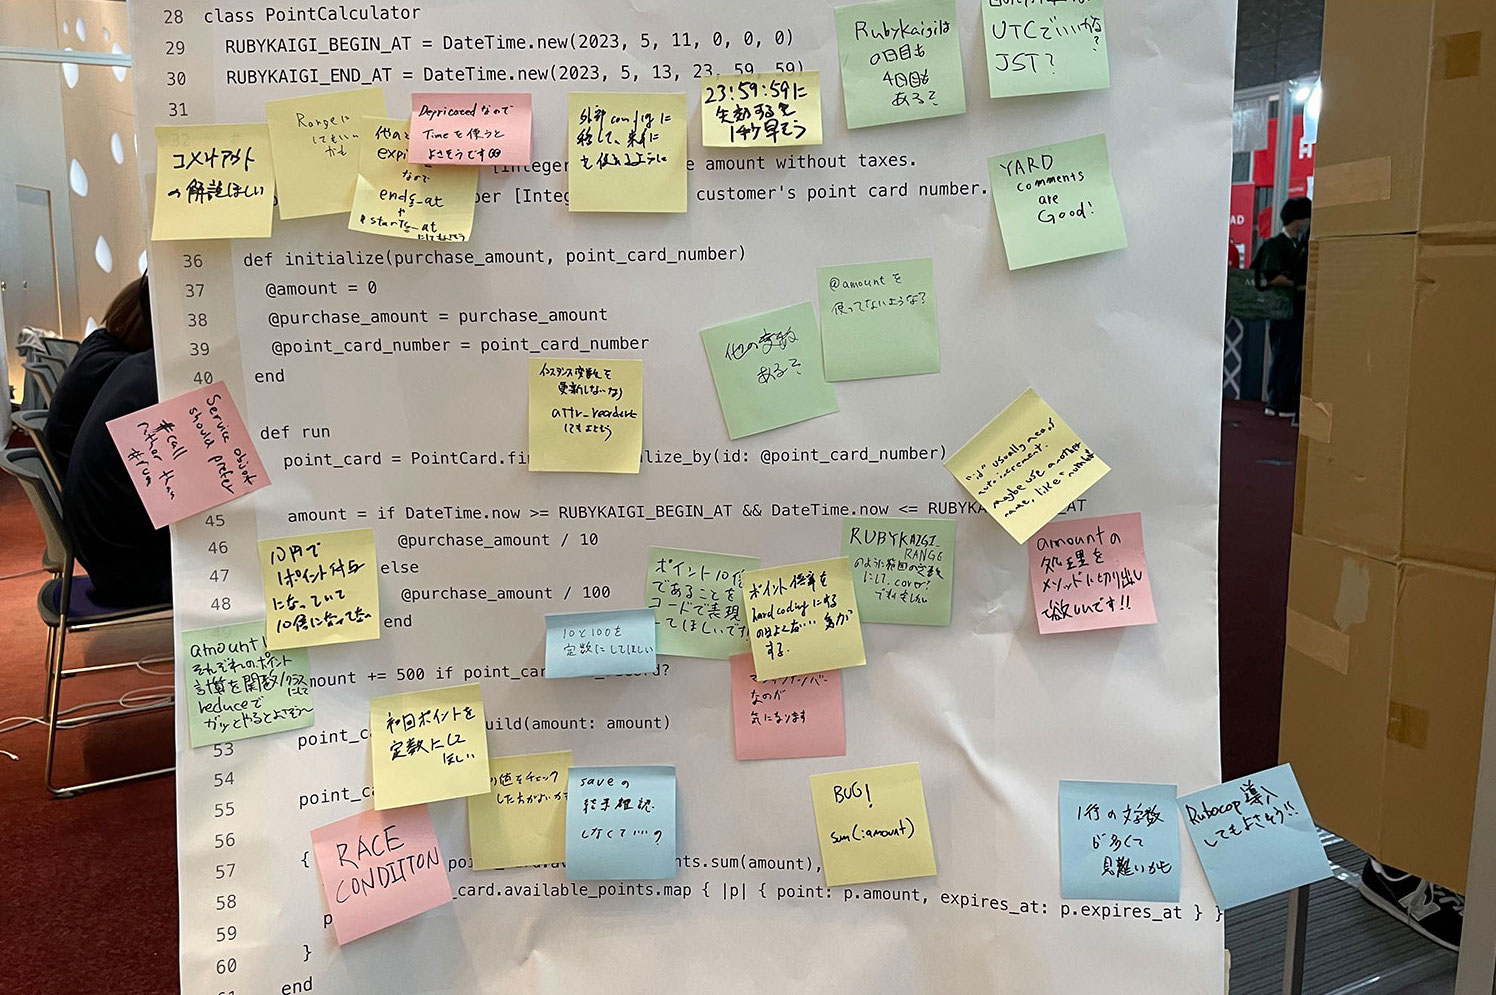 28 class PointCalculator
29 RUBYKAIGI_BEGIN_AT = DateTime.new(2023, 5, 11, 0, 0, 0)
30 RUBYKAIGI_END_AT = DateTime.new(2023, 5, 13, 23, 59, 59)
31
Rubykaigiは
0日目も
4日目も
ある?
UTCでいいかな?
JST?
コメントアウト
の解説ほしい
Rangeに
してもいい
かも
なので
ends_at
や
starts_at
Depricatedなので
Timeを使うと
よさそうです
外部configに
移して、来年に
も使えるように
23:59:59に
失効すると
1秒早そう
YARD
comments
are
Good!
[Integer
e amount without taxes.
ber [Integ
customer's point card number.
36 def initialize(purchase_amount, point_card_number)
37 @amount = 0
38 @purchase_amount = purchase_amount
39 @point_card_number = point_card_number
40 end
@amountを
使ってないような?
他の変数
ある?
インスタンス変数を
更新しないなら
attr_reader
Service object
should prefer
#call
rather than
#run
def run
point_card = PointCard.fi
alize_by(id: @point_card_number)
"id" usually means
auto increment.
maybe use another
name, like "number"
45 amount = if DateTime.now >= RUBYKAIGI_BEGIN_AT && DateTime.now <= RUBYK
AT
46 @purchase_amount / 10
47 else
48 @purchase_amount / 100
end
10円で
1ポイント付与
になっていて
10倍になってない
ポイント10倍
であることを
コードで表現
してほしいです!
ポイント倍率を
hard codingにする
のはよくない… 気が
する.
RUBYKAIGI_
RANGE
のような範囲の定数
にして, cover?
amountの
処理を
メソッドに切り出し
て欲しいです!!
10と100を
定数にしてほしい
amount!
それぞれのポイント
計算を関数/クラスにして
reduceで
ガッとやるとよさそう〜
mount += 500 if point_ca
cord?
マジックナンバー
なのが
気になります
初回ポイントを
定数にして
ほしい
53 point_c
uild(amount: amount)
54
55 point_ca
56
値をチェック
した方がよい
saveの
結果確認
しなくて…?
BUG!
sum(:amount)
1行の文字数
が多くて
見難いかも
Rubocop導入
してもよさそう!!
RACE
CONDITION
57 {
po
nts.sum(amount),
58
_card.available_points.map { |p| { point: p.amount, expires_at: p.expires_at } }
59 p
60 }
end